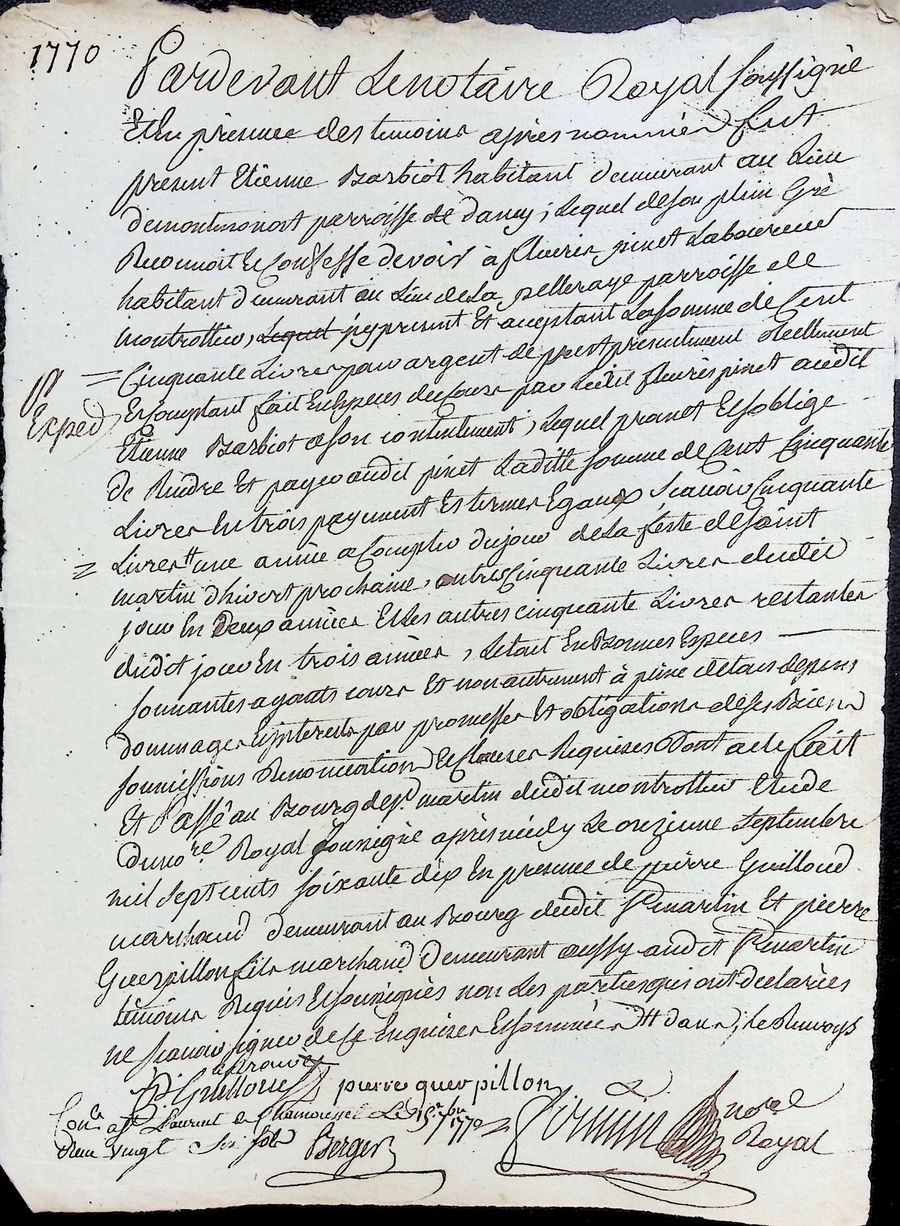 1770
Pardevant Le notaire Royal soussigné
Et En présence des temoins après nommés fut
present Etienne Barbiot habitant demeurant au Lieu
de montmonost parroisse de dancy ; Lequel de son plein Gré
Reconnoit & Confesse devoir à fleurie pinet Laboureur
habitant demeurant au Lieu de La pelleraye parroisse de
montrottier, Lequel icy present Et acceptant La somme de Cent
Cinquante Livres pour argent de prest presentement Reellement
Exped
Et Comptant fait En Especes de Cours par Ledit fleurie pinet audit
Etienne Barbiot a son contentement, Lequel promet Et s'oblige
de Rendre Et payer audit pinet Laditte somme de Cent Cinquante
Livres En trois payement Et termes Egaux Scavoir Cinquante
Livres une année a Compter du jour de La feste de saint
martin d'hivert prochaine, autres Cinquante Livres dudit
jour En Deux années Et Les autres cinquante Livres restantes
dudit jour En trois années, Letout En Bonnes Especes
sonnantes ayants cours Et non autrement à peine de tous depens
dommages interests par promesses Et obligations de ses Biens
soumissions Renonciation & Clauses Requises Dont acte fait
Et Passé au Bourg de st martin dudit montrottier Etude
du nore Royal soussigné après midy Le onzieme septembre
mil sept cents soixante dix En presence de pierre Guilloud
marchand demeurant au Bourg dudit st martin Et pierre
Guerpillon fils marchand demeurant aussy audit st martin
témoins Requis Et soussignés non Les parties qui ont declarées
ne scavoir signer de ce Enquises Et sommées dans, le Renvoys
aprouvé
P. Guilloud pierre guerpillon
Con.lé a St Laurent de Chamousset Le 15e 7bre 1770
Reçu vingt six sols Berger
nore
Royal